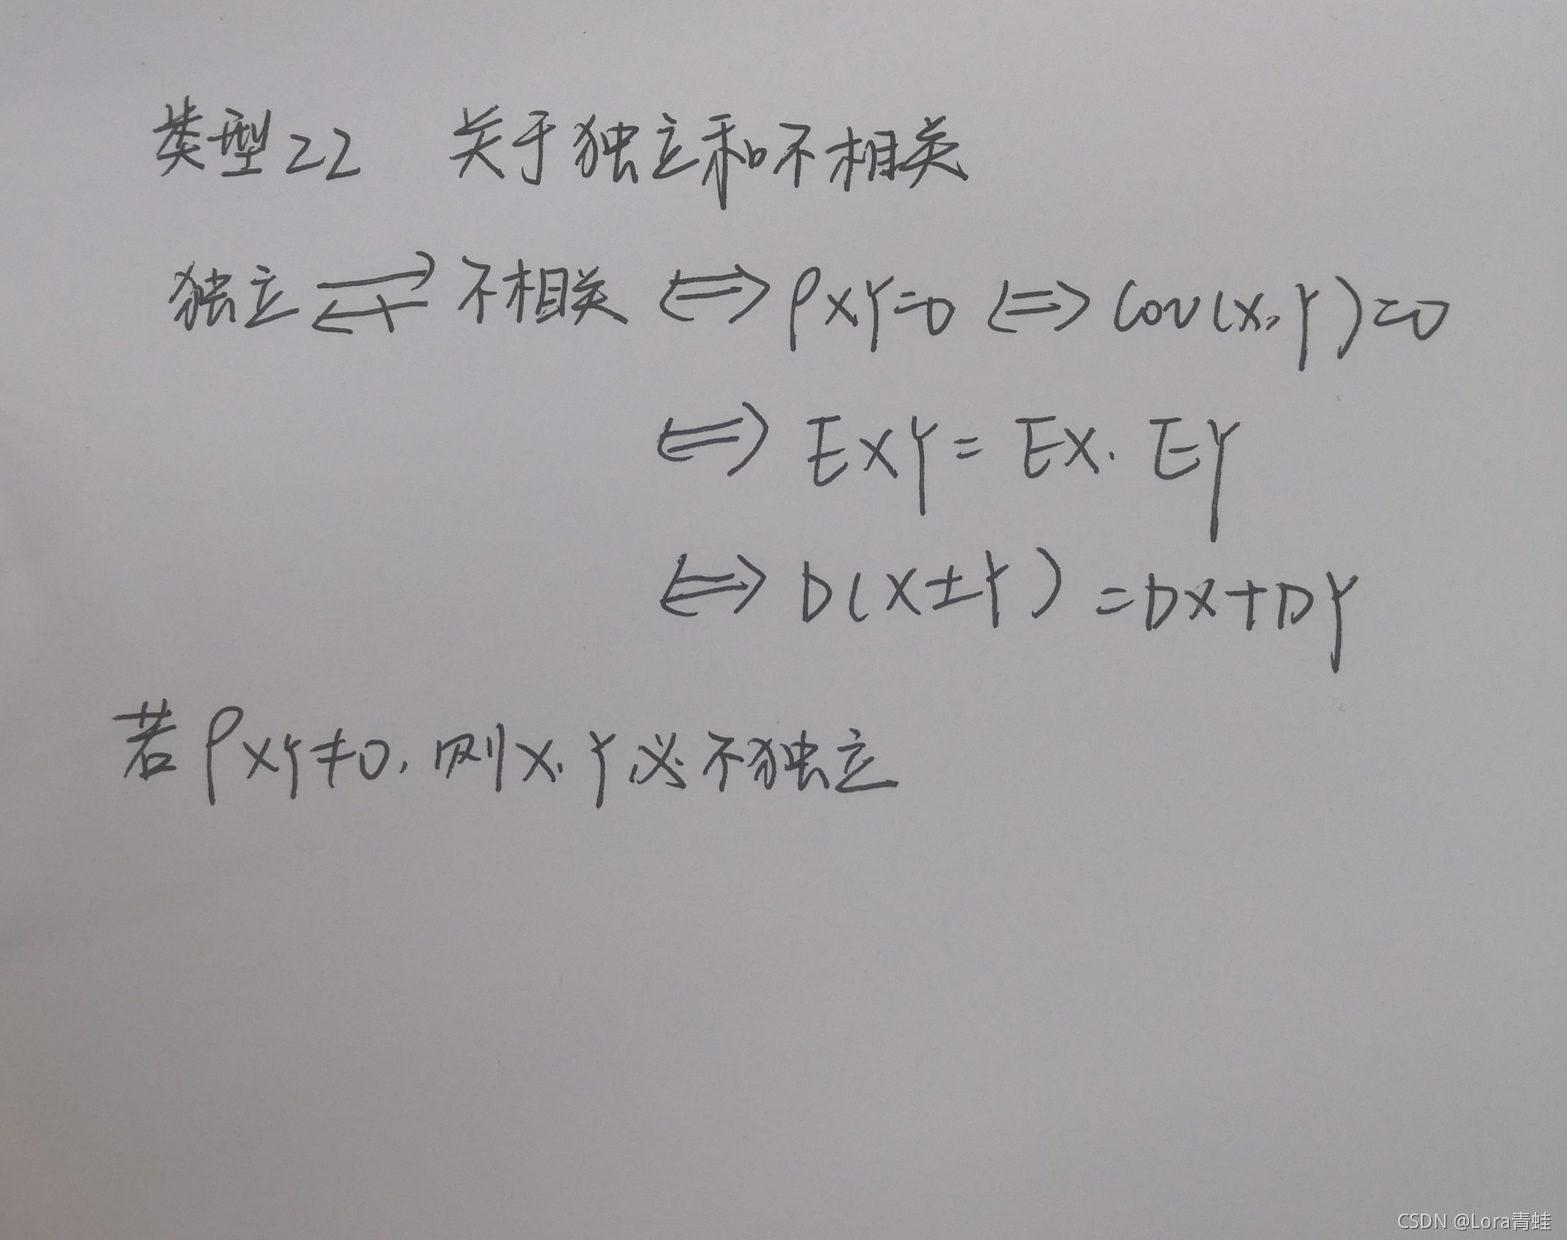 类型22 关于独立和不相关
独立 ⇄̸ 不相关 ⟺ ρXY=0 ⟺ Cov(X,Y)=0
⟺ EXY = EX·EY
⟺ D(X±Y)=DX+DY
若ρXY≠0,则X,Y必不独立
CSDN @Lora青蛙